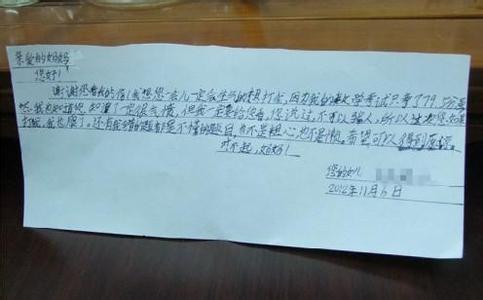 亲爱的妈妈
您好！
谢谢您看我的信！我想您一会儿一定会生气的想打我，因为我的数学考试只考了79.5分
我也知道您知道了一定很气愤，但我一定要给您看，您说过，不可以骗人，所以这次您如果
打我，我也服了，还有我错的题都是不懂的题目，也不是粗心也不是懒。希望可以得到原谅。
对不起，妈妈！
您的女儿
2012年11月6日